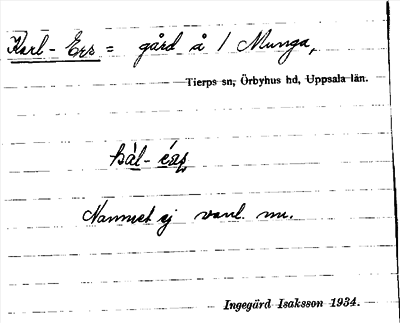 Karl-Ers = gård å 1 Munga,
Tierps sn, Örbyhus hd, Uppsala län.
Namnet ej vanl. nu.
Ingegärd Isaksson 1934.